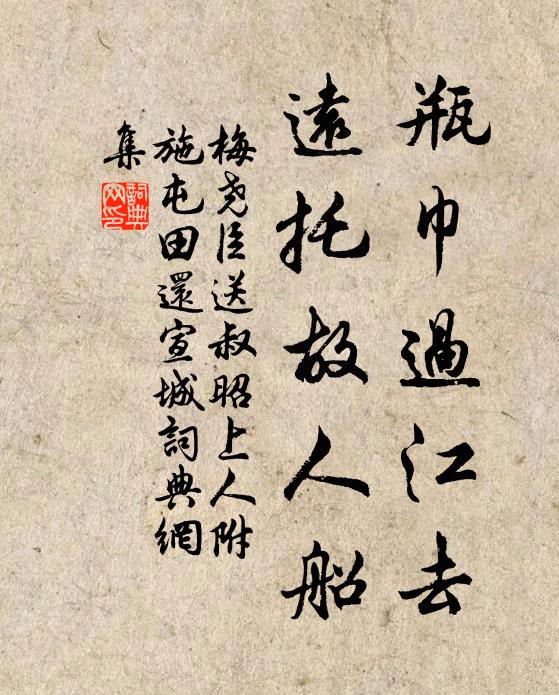 瓶巾過江去
遠托故人船
梅尧臣送叔昭上人附
施屯田還宣城詞典網
集
詞典
网印